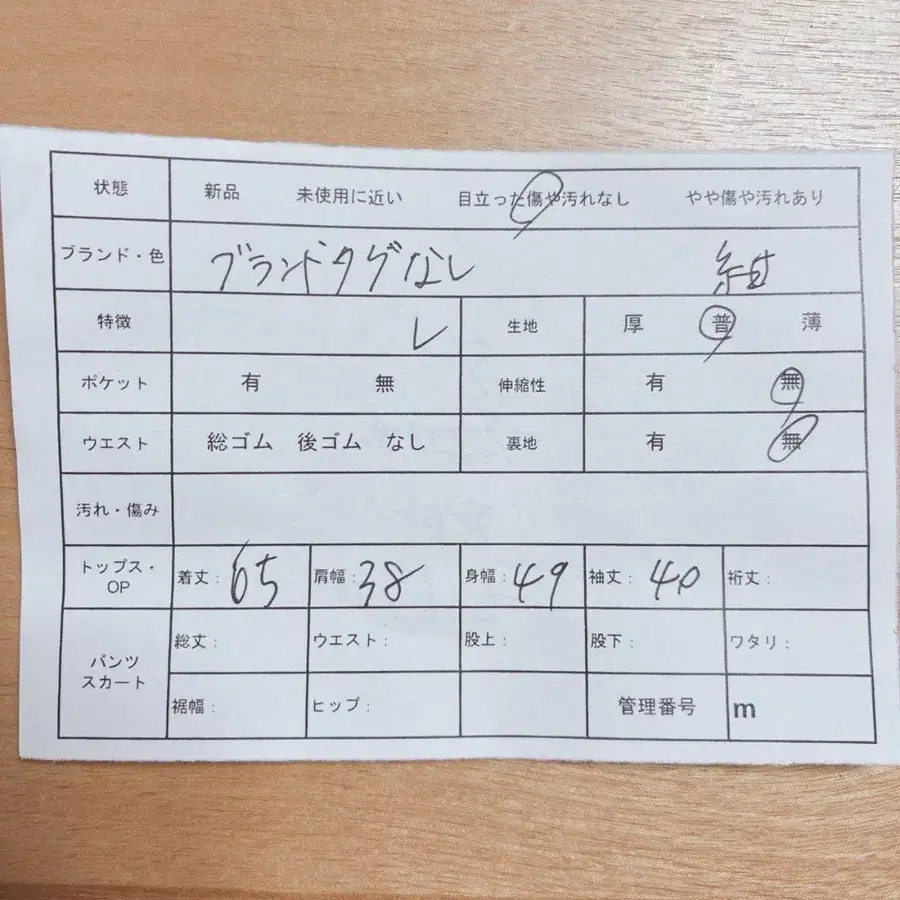 状態 新品 未使用に近い 目立った傷や汚れなし やや傷や汚れあり
ブランド・色 ブランドタグなし 紺
特徴 レ 生地 厚 普 薄
ポケット 有 無 伸縮性 有 無
ウエスト 総ゴム 後ゴム なし 裏地 有 無
汚れ・傷み
トップス・OP 着丈: 65 肩幅: 38 身幅: 49 袖丈: 40 裄丈:
パンツ スカート 総丈: ウエスト: 股上: 股下: ワタリ:
裾幅: ヒップ: 管理番号 m